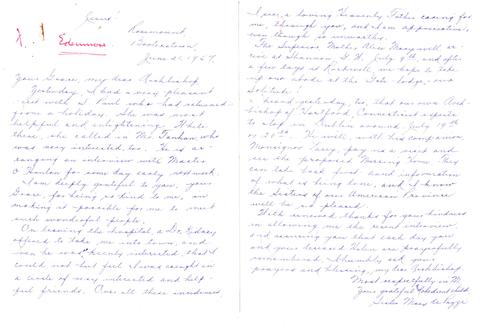 Jesus!
Rosemount,
Booterstown
June 25, 1957.
Edenmore
Your Grace, my dear Archbishop
Yesterday, I had a very pleasant
visit with S. Paul who had returned
from a holiday. She was most
helpful and enlightening. While
there, she called in Mr. Fanlan, who
was very interested, too. He is ar-
ranging an interview with Master
O'Hanlon for some day early next week.
I am deeply grateful to you, your
Grace, for being so kind to me, in
making it possible for me to meet
such wonderful people.
On leaving the hospital a Dr.
offered to take me into town, and
was he keenly interested, that I
could not but feel I was caught in
a circle of very interested and help-
ful friends. Over all these incidences
I see a loving Heavenly Father caring for
me, through you, and I am appreciative,
even though so unworthy.
The Superior Mother Alice Mary will ar-
rive at Shannon, D.V. July 9th, and after
a few days in Rockwell, we hope to take
up our abode at the Gate-lodge, our
Solitude!
I heard yesterday, too, that our own Arch-
bishop of Hartford, Connecticut expects
to stop in Dublin around July 19th
or 20th. He will, with his companion
Monsignor pay us a visit and
see the proposed Nursing Home. They
can take back first hand information
of what is being done, and I know
the Sisters of our American Province
will be so pleased.
With renewed thanks for your kindness
in allowing me the recent interview
and assuring you that each day you
and your are prayerfully
remembered. I humbly ask your
prayers and blessing, my dear Archbishop
Most respectfully in M.
Your grateful obedient child,
Sister Mary